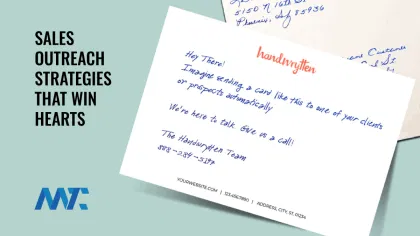 SALES
OUTREACH
STRATEGIES
THAT WIN
HEARTS
MTC
5150 N 16th St
Phoenix,
85936
handwrytten
Hey There!
Imagine sending a card like this to one of your clients
or prospects automatically
We're here to talk Give us a call!
The Handwrytten Team
YOURWEBSITE.COM | 123.456.7890 | ADDRESS, CITY, ST, 01234